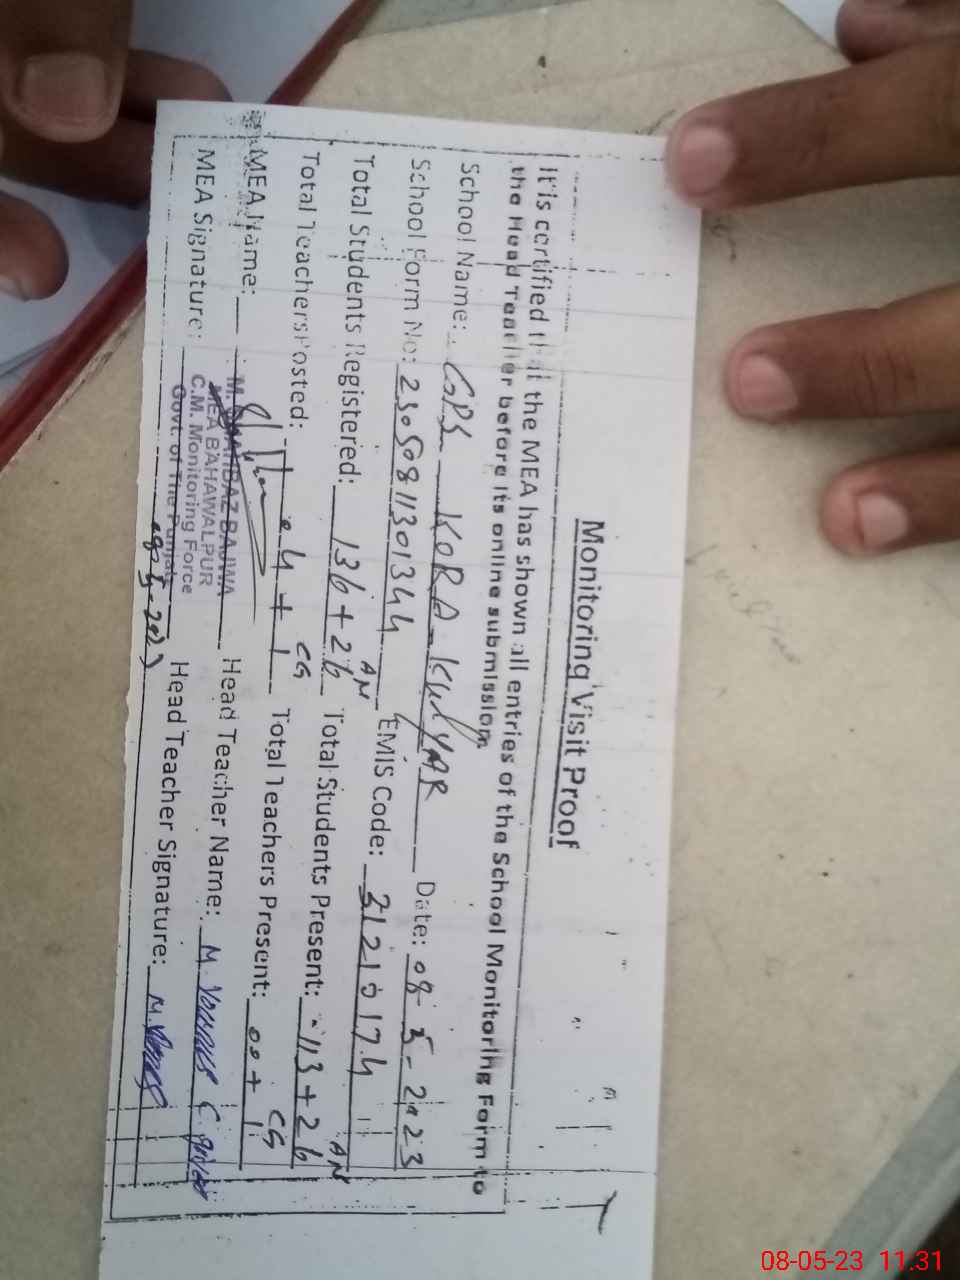 Monitoring Visit Proof
It is certified that the MEA has shown all entries of the School Monitoring Form to
the Head Teacher before its online submission.
School Name: GPS KORA-KULYAR Date: 08-5-2023
School Form No: 23050811301344 EMIS Code: 31210174
AN AN
Total Students Registered: 136+26 Total Students Present: 113+26
CG CG
Total Teachers Posted: 04+1 Total Teachers Present: 00+1
MEA Name: M. SHAHBAZ BAJWA Head Teacher Name: M. Younus
MEA BAHAWALPUR
C.M. Monitoring Force
Govt. of The Punjab
MEA Signature: 08-5-2023 Head Teacher Signature: M. Younus
08-05-23 11.31